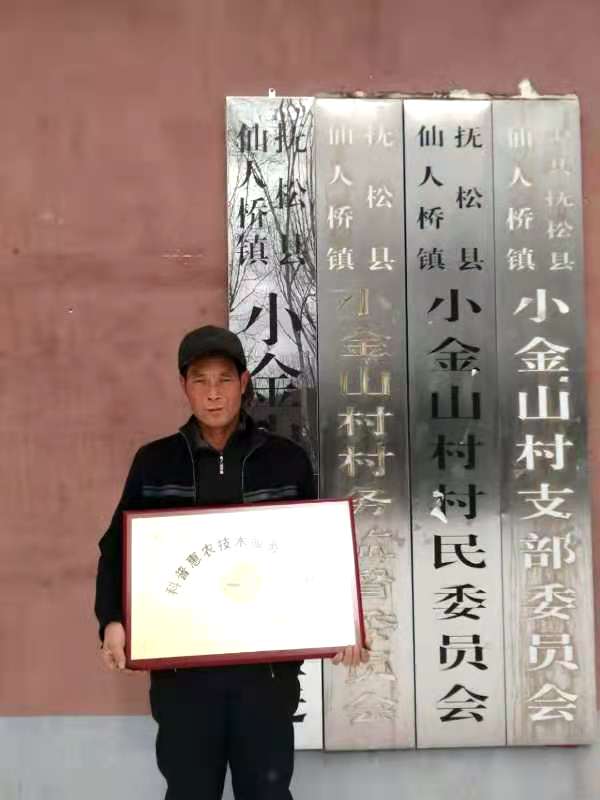 中共抚松县
仙人桥镇
小金山村支部委员会
抚松县
仙人桥镇
小金山村村民委员会
抚松县
仙人桥镇
小金山村村务监督委员会
抚松县
仙人桥镇
小金
科普惠农技术服务